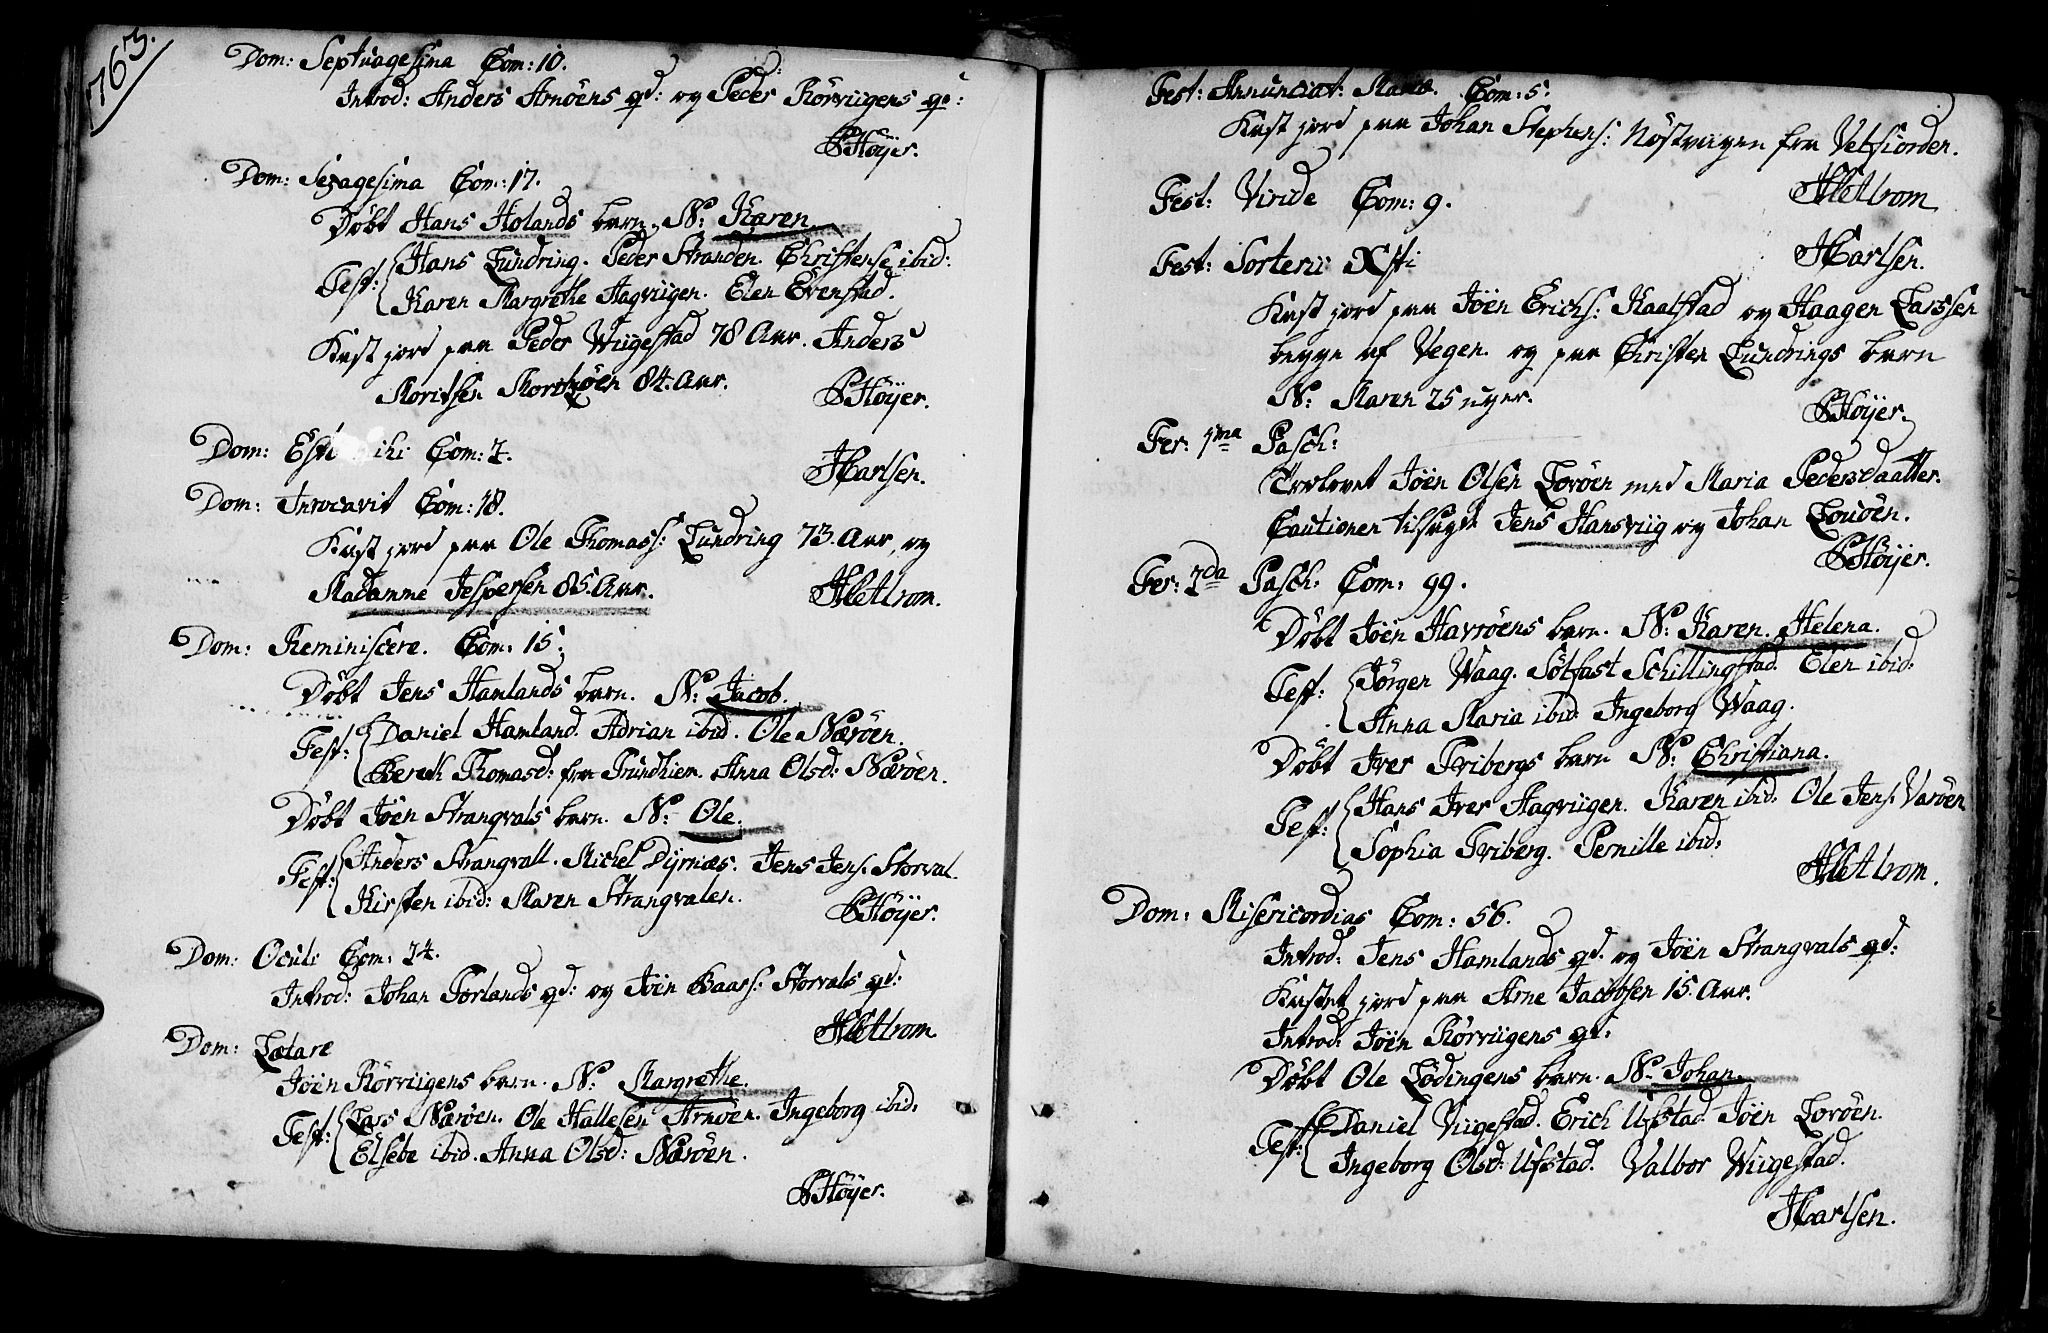 763.
Dom: Septuagesima Com: 10.
Introd: Anders Arnöens qd: og Peder Rörviigens qd:
PHöyer.
Dom: Sexagesima Com: 17.
Döbt Hans Holands barn. N: Karen
Test: Hans Lundring. Peder Stranden. Christense ibid:
Karen Margrethe Hagviigen. Elen Evenstad.
Kast jord paa Peder Wiigestad 78 Aar. Anders
Moritsen 84. Aar.
PHöyer.
Dom: Com: 7.
HCarlsen.
Dom: Invocavit Com: 18.
Kast jord paa Ole Thomass: Lundring 73. Aar, og
Madamme Jespersen 85. Aar.
Dom: Reminiscere. Com: 15.
Döbt Jens Hamlands barn. N: Jacob.
Test: Daniel Hamland. Adrian ibid. Ole Næröen.
Bereth Thomasd: fra Trundhiem. Anna Olsd: Næröen.
Döbt Jöen Strangvals barn. N: Ole.
Test: Anders Strangvall. Michel Dyrnæs. Jens Jens: Storval.
Kirsten ibid: Maren Strangvalen.
PHöyer.
Dom: Oculi Com: 24.
Introd: Johan Torlands qd: og Jöen Baars: Storvals qd:
Dom: Lætare
Jöen Rörviigens barn. N: Margrethe.
Test: Lars Næröen. Ole Hallesen Arnöen. Ingeborg ibid:
Elsebe ibid. Anna Olsd: Næröen.
PHöyer.
Fest: Annunciat: Mariæ. Com: 5.
Kast jord paa Johan Stephens: Nöstvaagen fra Velfiorden.
Fest: Viride Com: 9.
HCarlsen.
Fest: Xsti
Kast jord paa Jöen Erichs: Kaalstad og Haagen Larssen
begge af Vegen. og paa Christen Lundrings barn
N: Maren 25 uger.
PHöyer.
Fer: 1ma Pasch:
Trolovet Jöen Olsen Loröen med Maria Pedersdaatter.
Cautionen tilsagde Jens Hansviig og Johan
PHöyer.
Fer: 2da Pasch: Com: 99.
Döbt Jöen Havröens barn. N: Karen. Helena.
Test: Jörgen Waag. Sölfast Schillingstad. Elen ibid:
Anna Maria ibid: Ingeborg Waag.
Döbt Iver Fribergs barn N: Christiana.
Test: Hans Iver Hagviigen. Karen ibid: Ole Jens: Varöen
Sophia Friberg. Pernille ibid:
Dom: Misericordias Com: 56.
Introd: Jens Hamlands qd. og Jöen Strangvals qd:
Kastet jord paa Arne Jacobsen 15. Aar.
Introd: Jöen Rörviigens qd:
Döbt Ole Lödingens barn. N: Johan.
Test: Daniel Viigestad. Erich Ufstad. Jöen Loröen.
Ingeborg Olsd: Ufstad. Valbor Wiigestad.
HCarlsen.